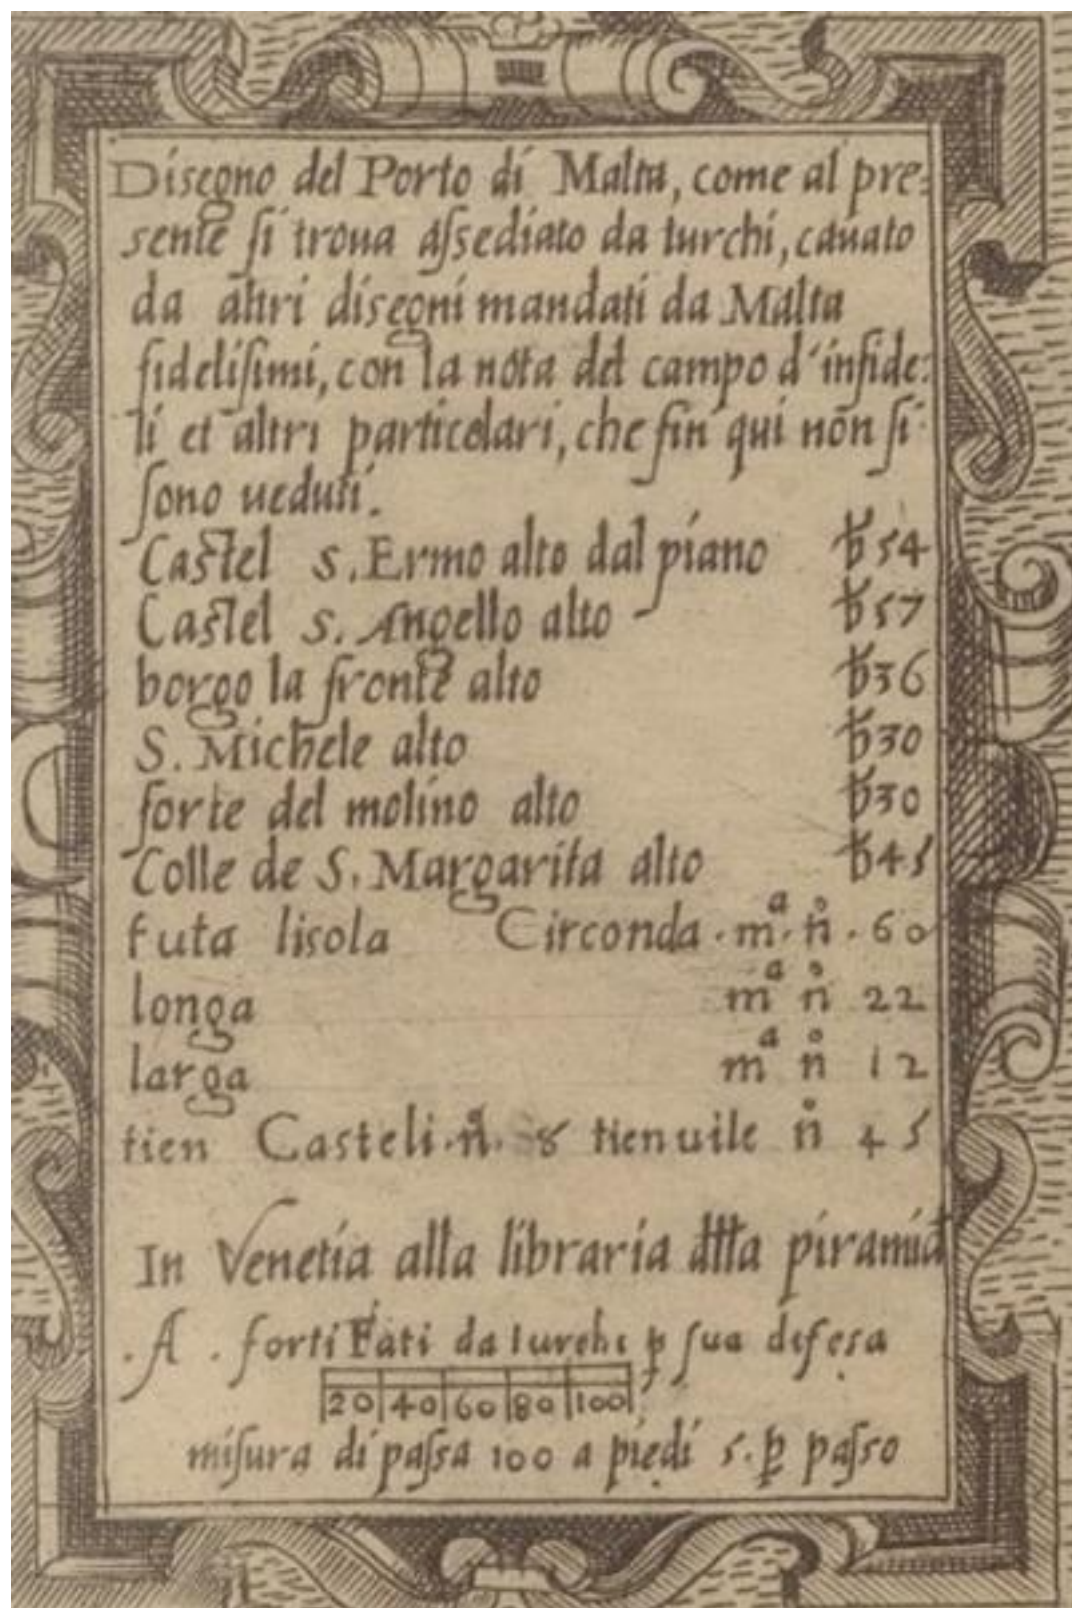 Disegno del Porto di Malta, come al pre:
sente si troua assediato da turchi, cauato
da altri disegni mandati da Malta
fidelissimi, con la nota del campo d'infide:
li et altri particolari, che fin qui non si
sono ueduti.
Castel s. Ermo alto dal piano 54
Castel s. Angello alto 57
borgo la fronte alto 36
S. Michele alto 30
forte del molino alto 30
Colle de S. Margarita alto 45
tuta lisola Circonda . mᵃ . n̊ . 60
longa mᵃ n̊ 22
larga mᵃ n̊ 12
tien Casteli . n̊ . 8 tien uile n̊ 45
In Venetia alla libraria piramid
. A . fortifati da turchi ꝑ sua difesa
20 40 60 80 100
misura di passa 100 a piedi 5. ꝑ passo